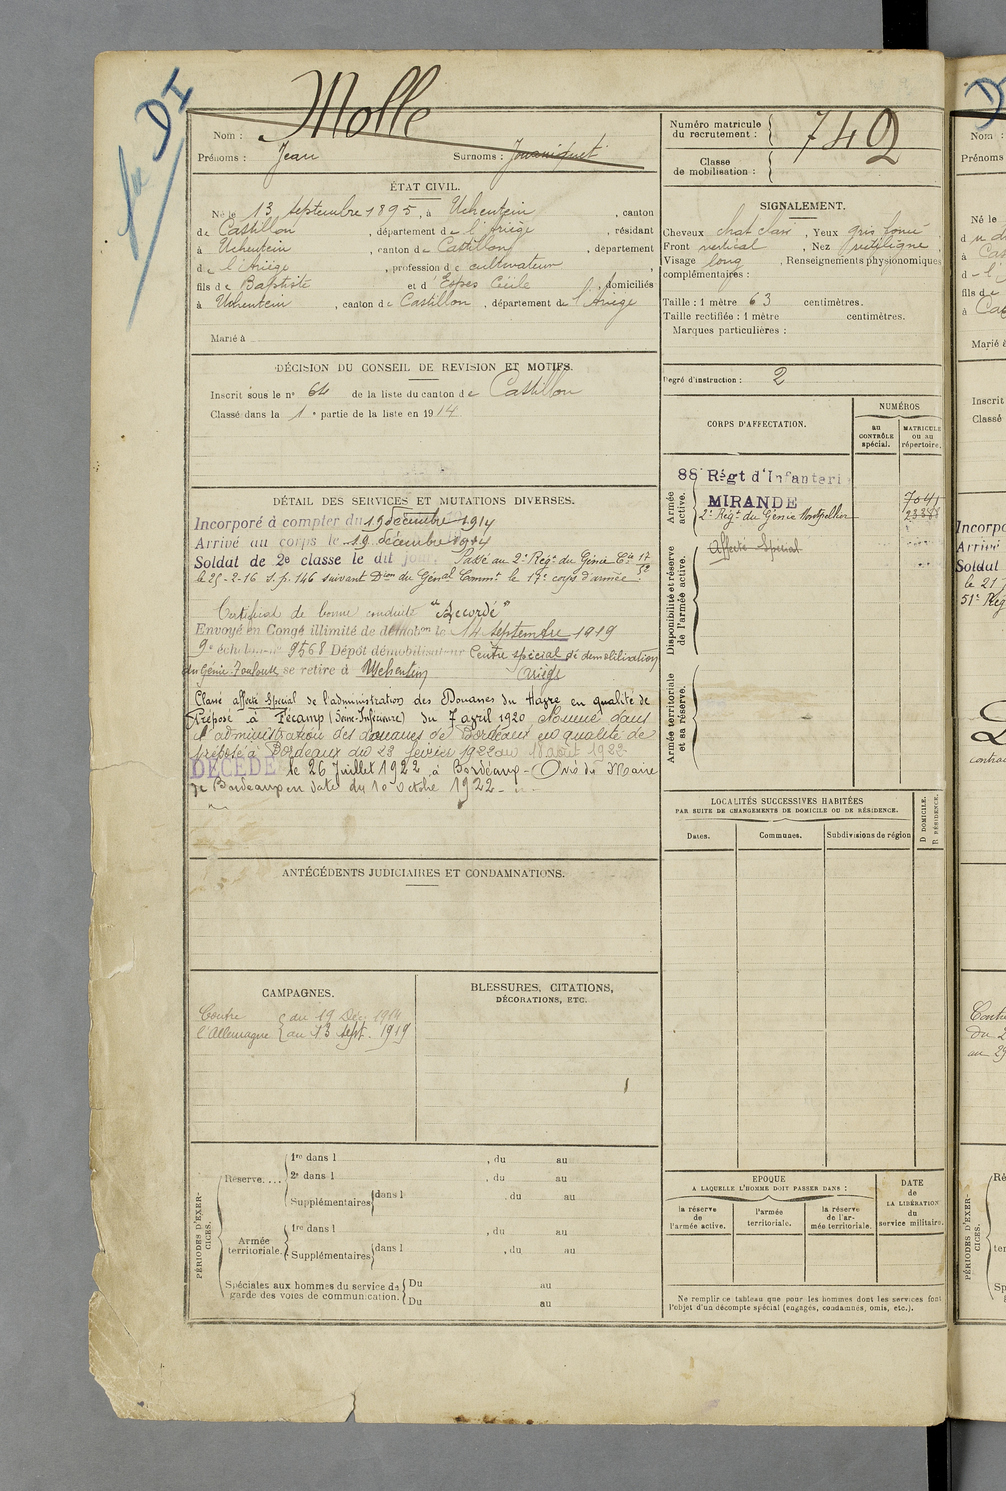 DI
Nom : Molle
Prénoms : Jean Surnoms :
Numéro matricule du recrutement : 742
Classe de mobilisation :
ÉTAT CIVIL.
Né le 13 septembre 1895, à Uchentein, canton
de Castillon, département de l'Ariège, résidant
à Uchentein, canton de Castillon, département
de l'Ariège, profession de cultivateur,
fils de Baptiste et d'Espes Cécile, domiciliés
à Uchentein, canton de Castillon, département de l'Ariège
Marié à
SIGNALEMENT.
Cheveux chat clair, Yeux gris foncé
Front vertical, Nez rectiligne
Visage long, Renseignements physionomiques
complémentaires :
Taille : 1 mètre 63 centimètres.
Taille rectifiée : 1 mètre centimètres.
Marques particulières :
Degré d'instruction : 2
DÉCISION DU CONSEIL DE REVISION ET MOTIFS.
Inscrit sous le n° 64 de la liste du canton de Castillon
Classé dans la 1e partie de la liste en 1914
DÉTAIL DES SERVICES ET MUTATIONS DIVERSES.
Incorporé à compter du 19 décembre 1914
Arrivé au corps le 19 décembre 1914
Soldat de 2e classe le dit jour. Passé au 2e Régt du Génie Cie 17/52
le 25-2-16 s.p. 146 suivant Don du Génal Commt le 17e corps d'armée.
Certificat de bonne conduite "Accordé"
Envoyé en Congé illimité de démobon le 14 septembre 1919
9e échelon n° 9568 Dépôt démobilisateur Centre spécial de démobilisation
du Génie Toulouse se retire à Uchentein Ariège
Classé affecté Spécial de l'administration des Douanes du Havre en qualité de
Préposé à Fécamp (Seine-Inférieure) du 7 avril 1920 Nommé dans
l'administration des douanes de Bordeaux en qualité de
préposé à Bordeaux du 23 février 1922 au 18 août 1922
DÉCÉDÉ le 26 Juillet 1922 à Bordeaux - Avis du Maire
de Bordeaux en date du 10 octobre 1922
CORPS D'AFFECTATION.
NUMÉROS
au CONTRÔLE spécial.
MATRICULE ou au répertoire.
Armée active.
88 Régt d'Infanteri
MIRANDE 7041
2e Régt du Génie Montpellier
Disponibilité et réserve de l'armée active.
Affecté Spécial
Armée territoriale et sa réserve.
LOCALITÉS SUCCESSIVES HABITÉES
PAR SUITE DE CHANGEMENTS DE DOMICILE OU DE RÉSIDENCE.
Dates. Communes. Subdivisions de région
D DOMICILE.
R RÉSIDENCE.
ANTÉCÉDENTS JUDICIAIRES ET CONDAMNATIONS.
CAMPAGNES.
Contre l'Allemagne
du 19 Déc. 1914
au 13 sept. 1919
BLESSURES, CITATIONS,
DÉCORATIONS, ETC.
PÉRIODES D'EXERCICES.
Réserve....
1re dans l , du au
2e dans l , du au
Supplémentaires dans l , du au
Armée territoriale.
1re dans l , du au
Supplémentaires dans l , du au
Spéciales aux hommes du service de
garde des voies de communication.
Du au
Du au
EPOQUE
A LAQUELLE L'HOMME DOIT PASSER DANS :
la réserve de l'armée active.
l'armée territoriale.
la réserve de l'armée territoriale.
DATE de LA LIBÉRATION du service militaire.
Ne remplir ce tableau que pour les hommes dont les services font
l'objet d'un décompte spécial (engagés, condamnés, omis, etc.).